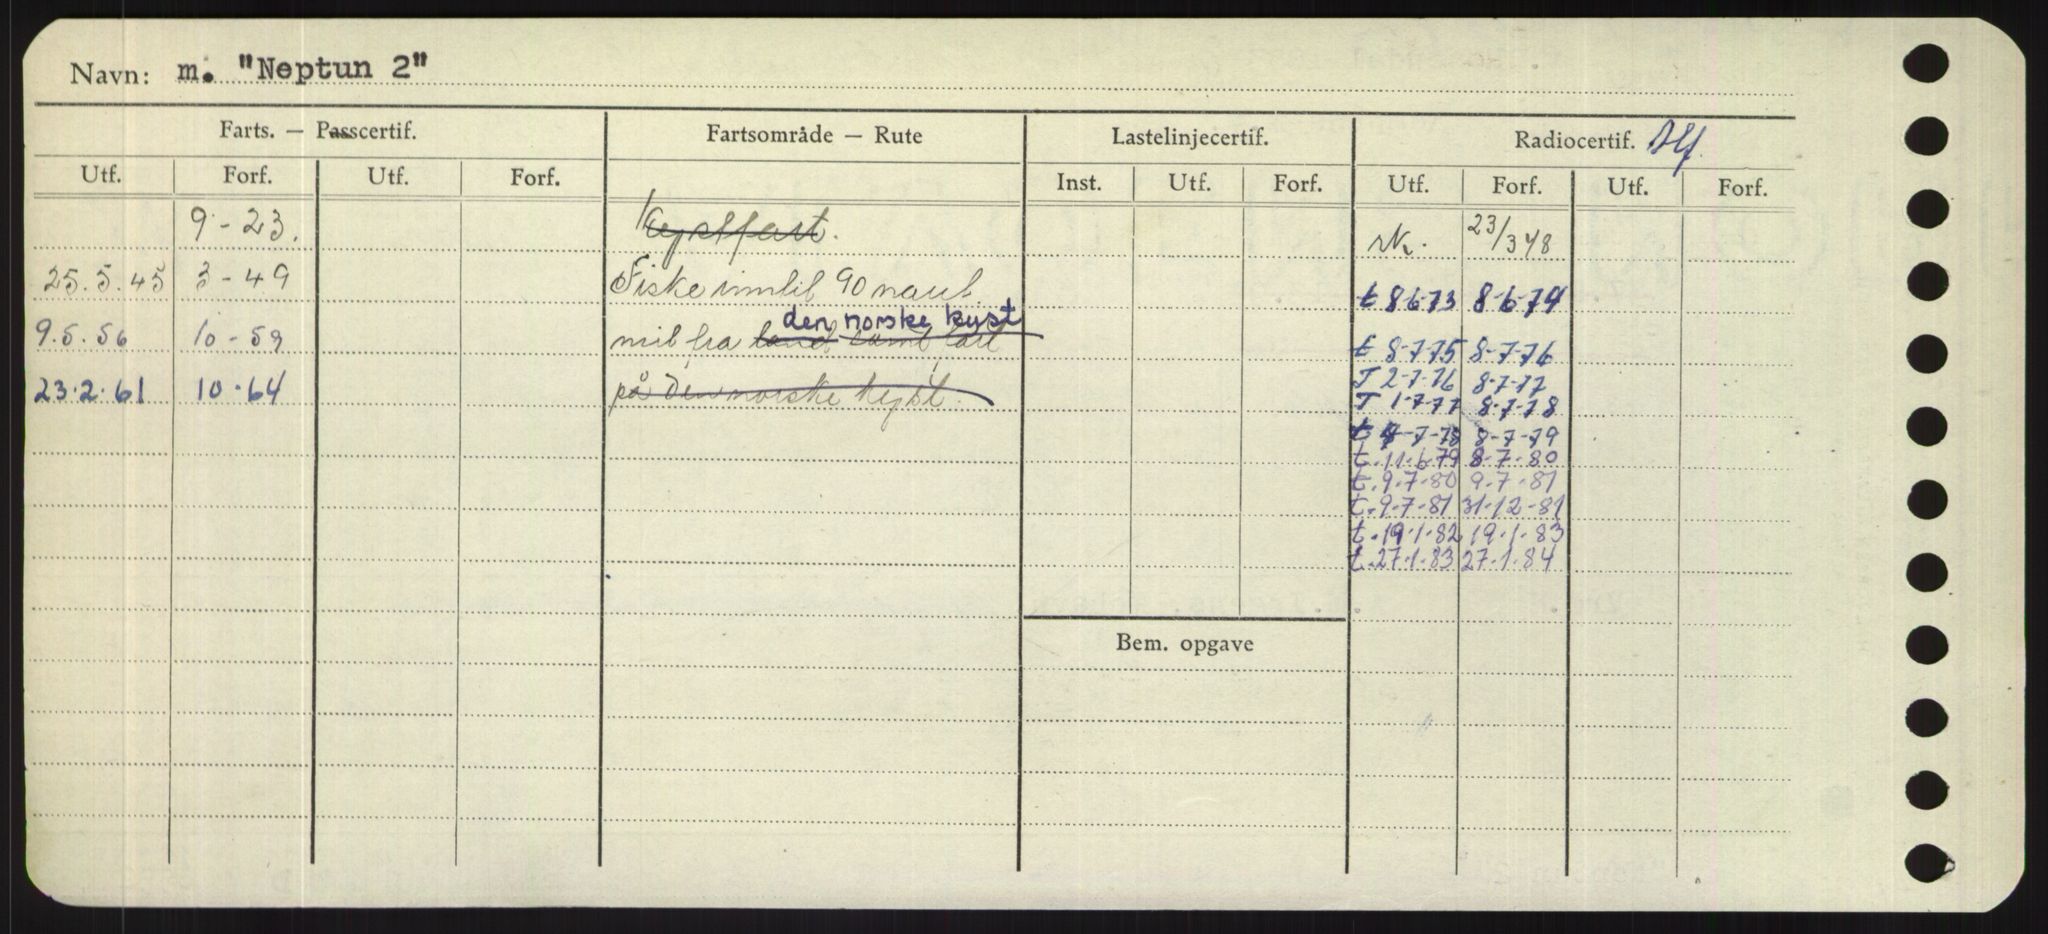 Navn: m. "Neptun 2"
Farts. — Passcertif. Fartsområde — Rute Lastelinjecertif. Radiocertif.
Utf. Forf. Utf. Forf. Inst. Utf. Forf. Utf. Forf. Utf. Forf.
9-23. Kystfart. 23/3 48
25.5.45 3-49 Fiske inntil 90 naut.
t 8-6-73 8-6-74
den norske kyst
9.5.56 10-59 mil fra land samt fart
t 8-7-75 8-7-76
T 2-7-76 8-7-77
23.2.61 10.64 på den norske kyst.
T 1-7-77 8-7-78
t 7-7-78 8-7-79
t. 11.6.79 8-7-80
t. 9.7-80 9.7-81
t. 9-7-81 31-12-81
t. 19.1.82 19.1.83
t. 27.1.83 27.1.84
Bem. opgave